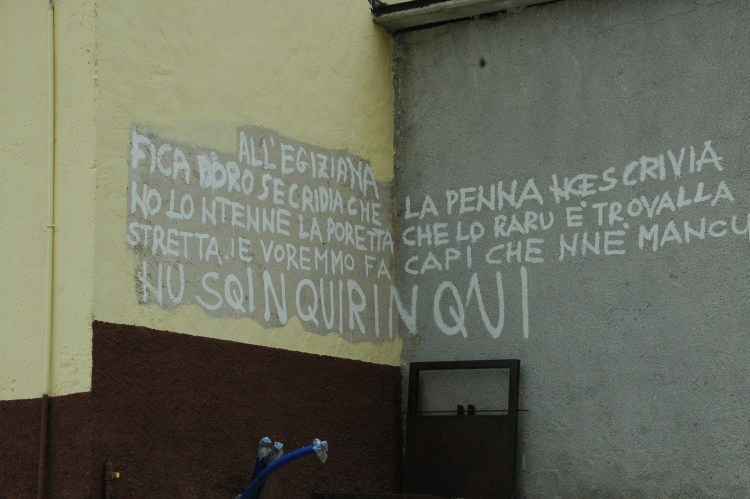 ALL'EGIZIANA
FICA D'ORO SE CRIDIA CHE LA PENNA NCE SCRIVIA
NO LO NTENNE LA PORETTA CHE LO RARU È TROVALLA
STRETTA. IE VOREMMO FA CAPÌ CHE NNÈ MANCU
NU SQINQUIRINQUI